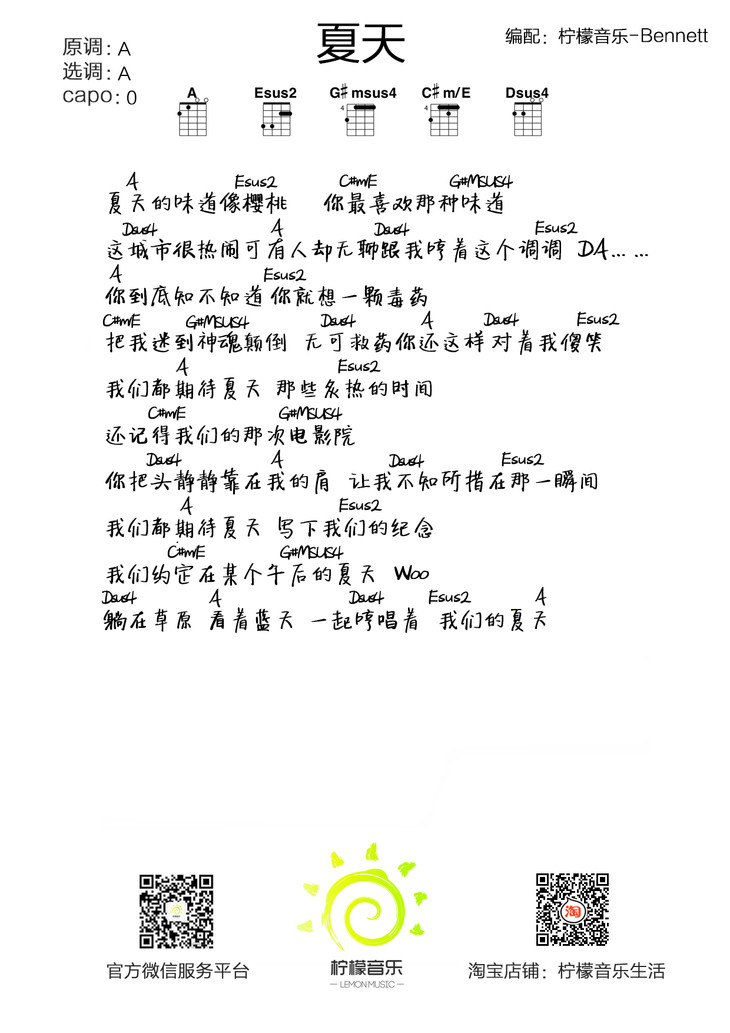 夏天
编配：柠檬音乐-Bennett
原调：A
选调：A
capo：0
A Esus2 G♯msus4 C♯m/E Dsus4
4 4
A Esus2 C#m/E G#MSUS4
夏天的味道像樱桃 你最喜欢那种味道
Dsus4 A Dsus4 Esus2
这城市很热闹可有人却无聊跟我哼着这个调调 DA... ...
A Esus2
你到底知不知道你就想一颗毒药
C#m/E G#MSUS4 Dsus4 A Dsus4 Esus2
把我迷到神魂颠倒 无可救药你还这样对着我傻笑
A Esus2
我们都期待夏天 那些炙热的时间
C#m/E G#MSUS4
还记得我们的那次电影院
Dsus4 A Dsus4 Esus2
你把头静静靠在我的肩 让我不知所措在那一瞬间
A Esus2
我们都期待夏天 写下我们的纪念
C#m/E G#MSUS4
我们约定在某个午后的夏天 Woo
Dsus4 A Dsus4 Esus2 A
躺在草原 看着蓝天 一起哼唱着 我们的夏天
淘
柠檬音乐
— LEMON MUSIC —
官方微信服务平台
淘宝店铺：柠檬音乐生活